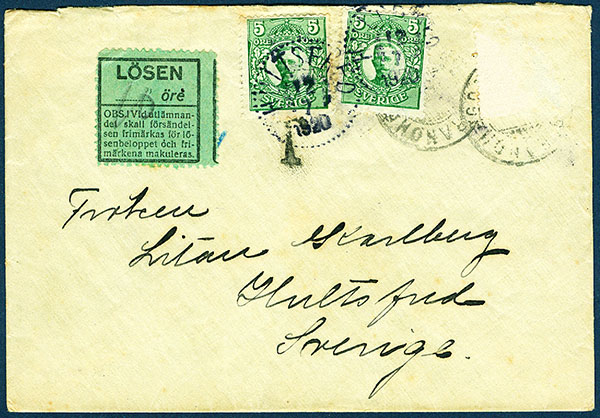 LÖSEN
15 öre
OBS.! Vid utlämnan-
det skall försändel-
sen frimärkas för lö-
senbeloppet och fri-
märkena makuleras.
5 ÖRE 5
SVERIGE
5 ÖRE 5
SVERIGE
HULTSFRED
1920
T
Fröken
Litan Karlberg
Hultsfred
Sverige.